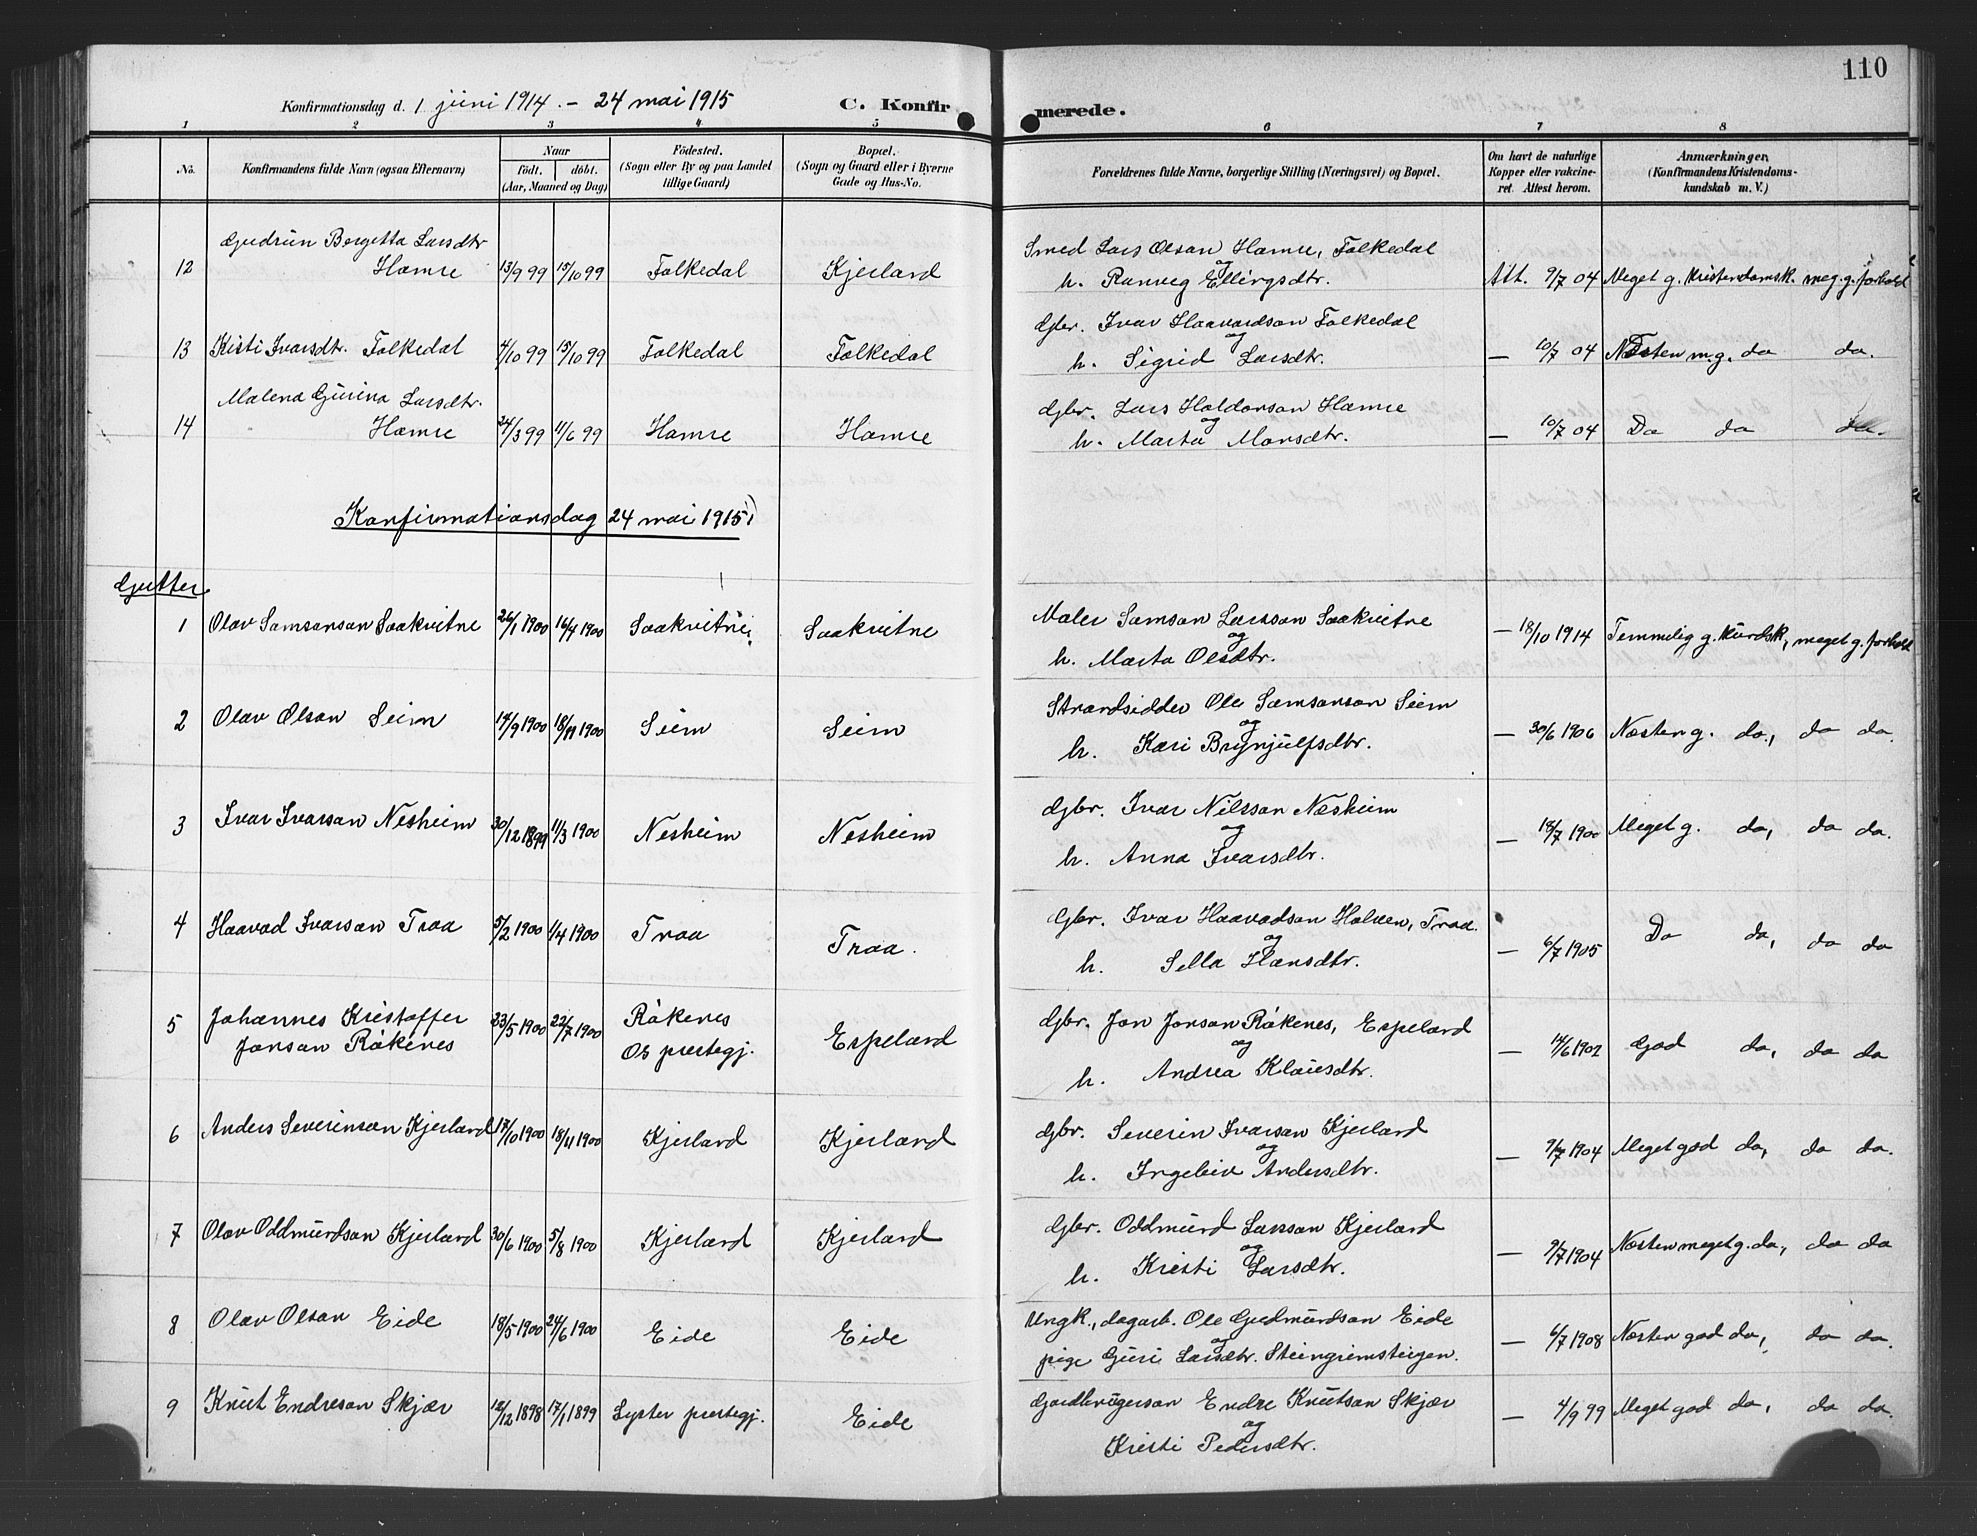 110
Konfirmationsdag d. 1 juni 1914. – 24 mai 1915 C. Konfirmerede.
1 2 3 4 5 6 7 8
No. Konfirmandens fulde Navn (ogsaa Efternavn) Naar født. døbt. (Aar, Maaned og Dag) Fødested. (Sogn eller By og paa Landet tillige Gaard) Bopæl. (Sogn og Gaard eller i Byerne Gade og Hus-No. Forældrenes fulde Navne, borgerlige Stilling (Næringsvei) og Bopæl. Om havt de naturlige Kopper eller vakcineret. Attest herom. Anmærkninger, (Konfirmandens Kristendomskundskab m. V.)
Gudrun Bergetta Larsdtr Smed Lars Olson Hamre, Folkedal
12 Hamre 13/9 99 15/10 99 Folkedal Kjerland og h. Ranveg Ellingsdtr. Att. 9/7 04 Meget g. kristendomsk. meg. g. forhold
Gbr. Ivar Haavardson Folkedal
13 Kristi Ivarsdtr. Folkedal 4/10 99 15/10 99 Folkedal Folkedal og h. Sigrid Larsdtr. — 10/7 04 Næsten m.g. do do.
Malena Gurina Larsdtr. Gbr. Lars Haldorson Hamre
14 Hamre 24/3 99 11/6 99 Hamre Hamre og h. Marta Monsdtr. — 10/7 04 Do do do.
Konfirmationsdag 24 mai 1915
Gutter
1 Olav Samsonson Saakvitne 26/1 1900 16/4 1900 Saakvitne Saakvitne Maler Samson Larsson Saakvitne og h. Marta Olsdtr. — 18/10 1914 Temmelig g. kundsk, meget g. forhold
2 Olav Olson Seim 14/9 1900 18/11 1900 Seim Seim Strandsidder Ole Samsonson Seim og h. Kari Brynjulfsdtr. — 30/6 1906 Næsten g. do, do do.
3 Ivar Ivarson Nesheim 30/12 1899 11/3 1900 Nesheim Nesheim Gbr. Ivar Nilsson Nesheim og h. Anna Ivarsdtr. — 18/7 1900 Meget g. do, do do.
4 Haavad Ivarson Traa 5/2 1900 1/4 1900 Traa Traa. Gbr. Ivar Haavadson Halven, Traa. og h. Sella Hansdtr. — 6/7 1905 Do do, do do
5 Johannes Kristoffer Jonson Røkenes 23/5 1900 22/7 1900 Røkenes Os prestegj. Espeland Gbr. Jon Jonson Røkenes, Espeland og h. Andrea Klausdtr. — 14/6 1902 God do, do do
6 Anders Severinson Kjerland 17/10 1900 18/11 1900 Kjerland Kjerland Gbr. Severin Ivarson Kjerland og h. Ingebir Andersdtr. — 9/7 1904 Meget god do, do do.
7 Olav Oddmundson Kjerland 30/6 1900 5/8 1900 Kjerland Kjerland Gbr. Oddmund Larsson Kjerland og h. Kristi Larsdtr. — 9/7 1904 Næsten meget g. do, do do
8 Olav Olson Eide 18/5 1900 24/6 1900 Eide Eide Ungk., dagarb. Ole Gudmundson Eide og pige Guri Larsdtr. Steingrimsteigen. — 6/7 1908 Næsten god do, do do.
9 Knut Endreson Skjær 12/12 1898 17/1 1899 Lyster prestegj. Eide Gardbrugerson Endre Knutson Skjær og Kristi Pedersdtr. — 4/9 99 Meget god do, do do.